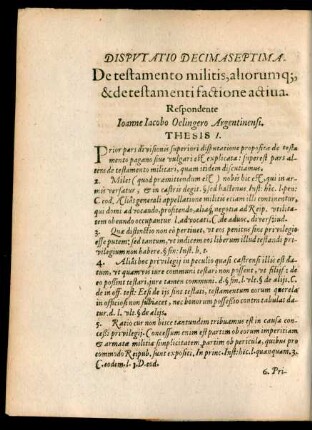 DISPVTATIO DECIMASEPTIMA.
De testamento militis, aliorumq;,
& de testamenti factione actiua.
Respondente
Ioanne Iacobo Oelingero Argentinensi.
THESIS I.
Prior pars diuisionis superiori disputatione proposita de testa-
mento pagano siue vulgari est explicata: superest pars al-
tera de testamento militari, quam itidem discutiamus.
2. Miles (quod præmittendum est) nobis hic est, qui in ar-
mis versatur, & in castris degit. §. sed hactenus. Inst. hîc. l. pen.
C. eod. Aliàs generali appellatione militis etiam illi continentur,
qui domi aduocando, profitendo, aliaq; negotia ad Reip. vtilita-
tem obeundo occupantur. l. aduocati. C. de aduoc. diuers. iud.
3. Quæ distinctio non eò pertinet, vt eos penitus sine priuilegio
esse putem; sed tantum, vt indicem eos liberum illud testandi pri-
uilegium non habere. §. fin. Inst. h. t.
4. Ali&is hoc priuilegij in peculio quasi castrensi illis est da-
tum, vt quamuis iure communi testari non possent, vt filijf: de
eo possint testari, iure tamen communi. d. §. fin. l. vlt. §. de alijs. C.
de in off. test. Et si de ijs sint testati, testamentum eorum querelæ
in officiosi non subiiacet, nec bonorum possessio contra tabulas da-
tur. d. l. vlt. §. de alijs.
5. Ratio cur non bisce tantundem tribuamus est in causa con-
cessi priuilegij. Concessum enim est partim ob eorum imperitiam
& armatæ militiæ simplicitatem, partim ob pericula, quibus pro
commodo Reipub. sunt expositi. In princ. Inst. hîc. l. quanquam. 3.
C. eodem. l. 1. D. eod.
6. Pri-